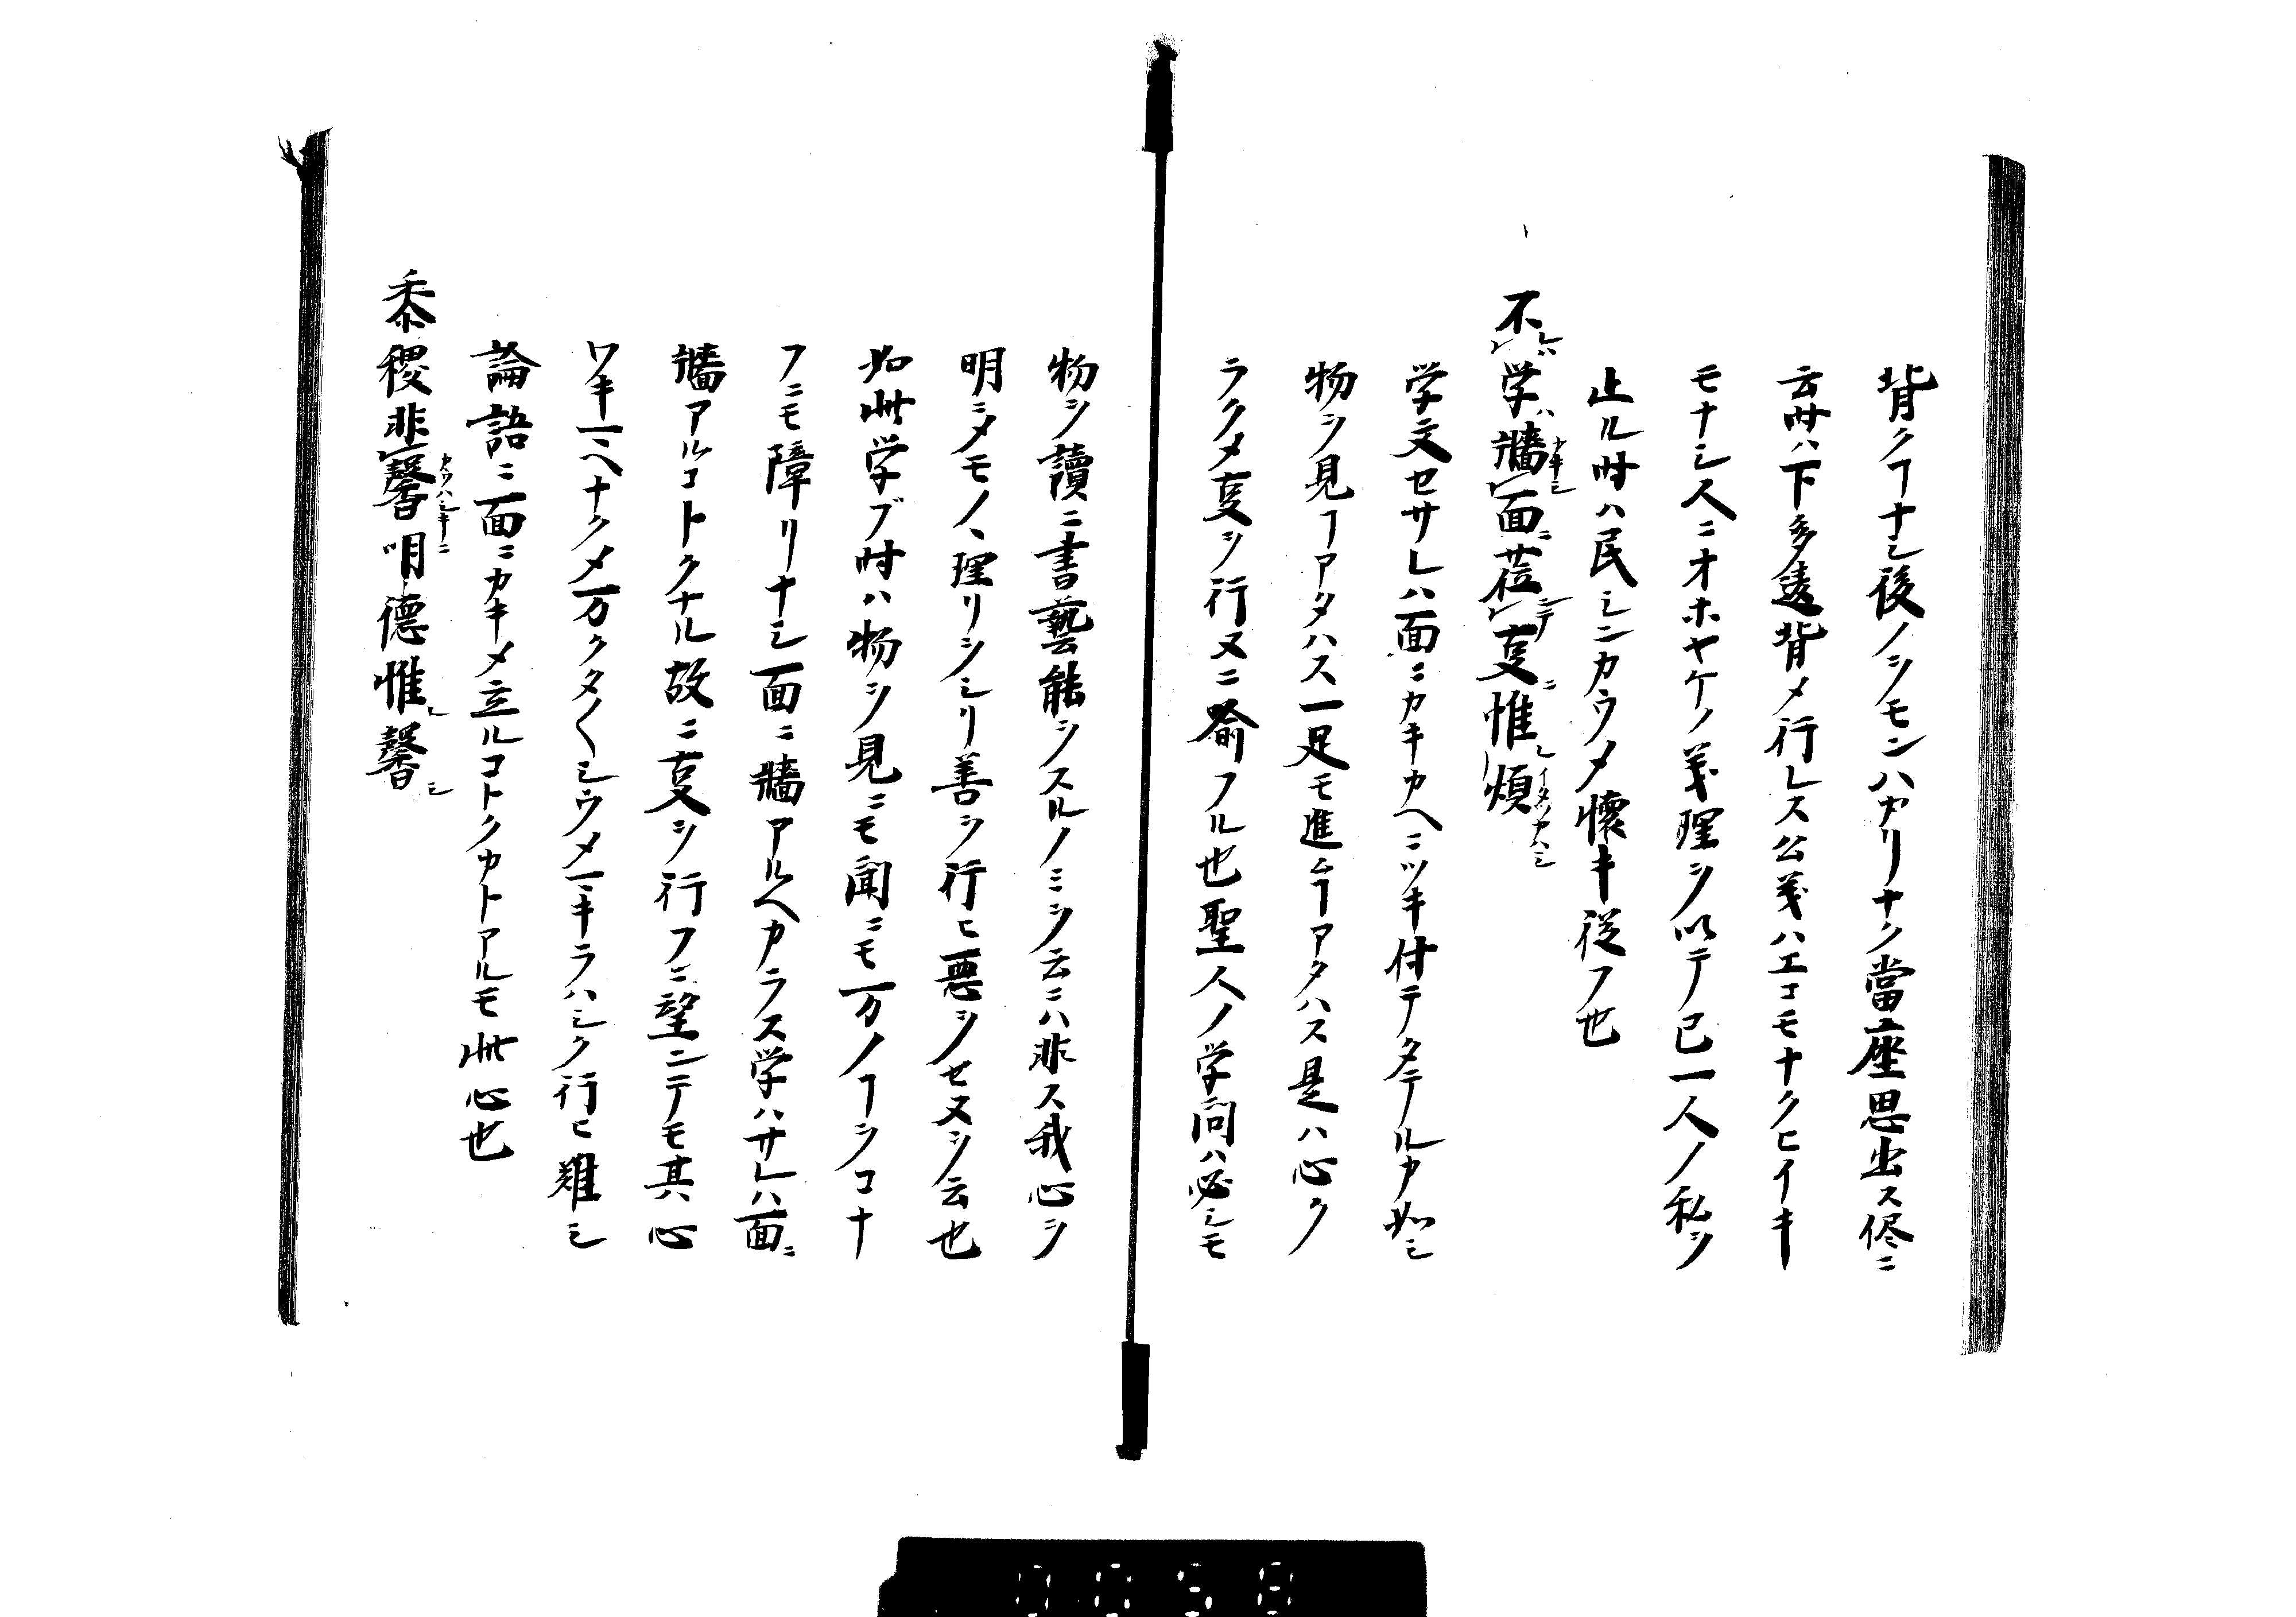 背クヿナシ後ノシモンハカリナク當座思出ス侭ニ
云時ハ下多違背メ行レス公義ハエコモナクヒイキ
モナシ人ニオホヤケノ義理ヲ以テ已一人ノ私ヲ
止ル時ハ民シンカウメ懐キ従フ也
不学牆面莅叓惟煩
学文セサレハ面ニカキカヘニツキ付テタテルカ如シ
物ヲ見ヿアタハス一足モ進ムヿアタハス是ハ心ク
ラクメ叓ヲ行ヌニ喩フル也聖人ノ学問ハ必シモ
物ヲ讀ニ書藝能ヲスルノミヲ云ニハ非ス我心ヲ
明ニメモノヽ理リヲシリ善ヲ行ヒ悪ヲセヌヲ云也
如此学ブ時ハ物ヲ見ニモ聞ニモ万ノヿヲコナ
フニモ障リナシ面ニ牆アルヘカラス学ハサレハ面ニ
牆アルコトクナル故ニ叓ヲ行フニ望ンテモ其心
ワキマヘナクメ万クタ〱シウメマキラハシク行ヒ難シ
論語ニ面ニカキメ立ルコトクカトアルモ此心也
黍稷非馨明德惟馨